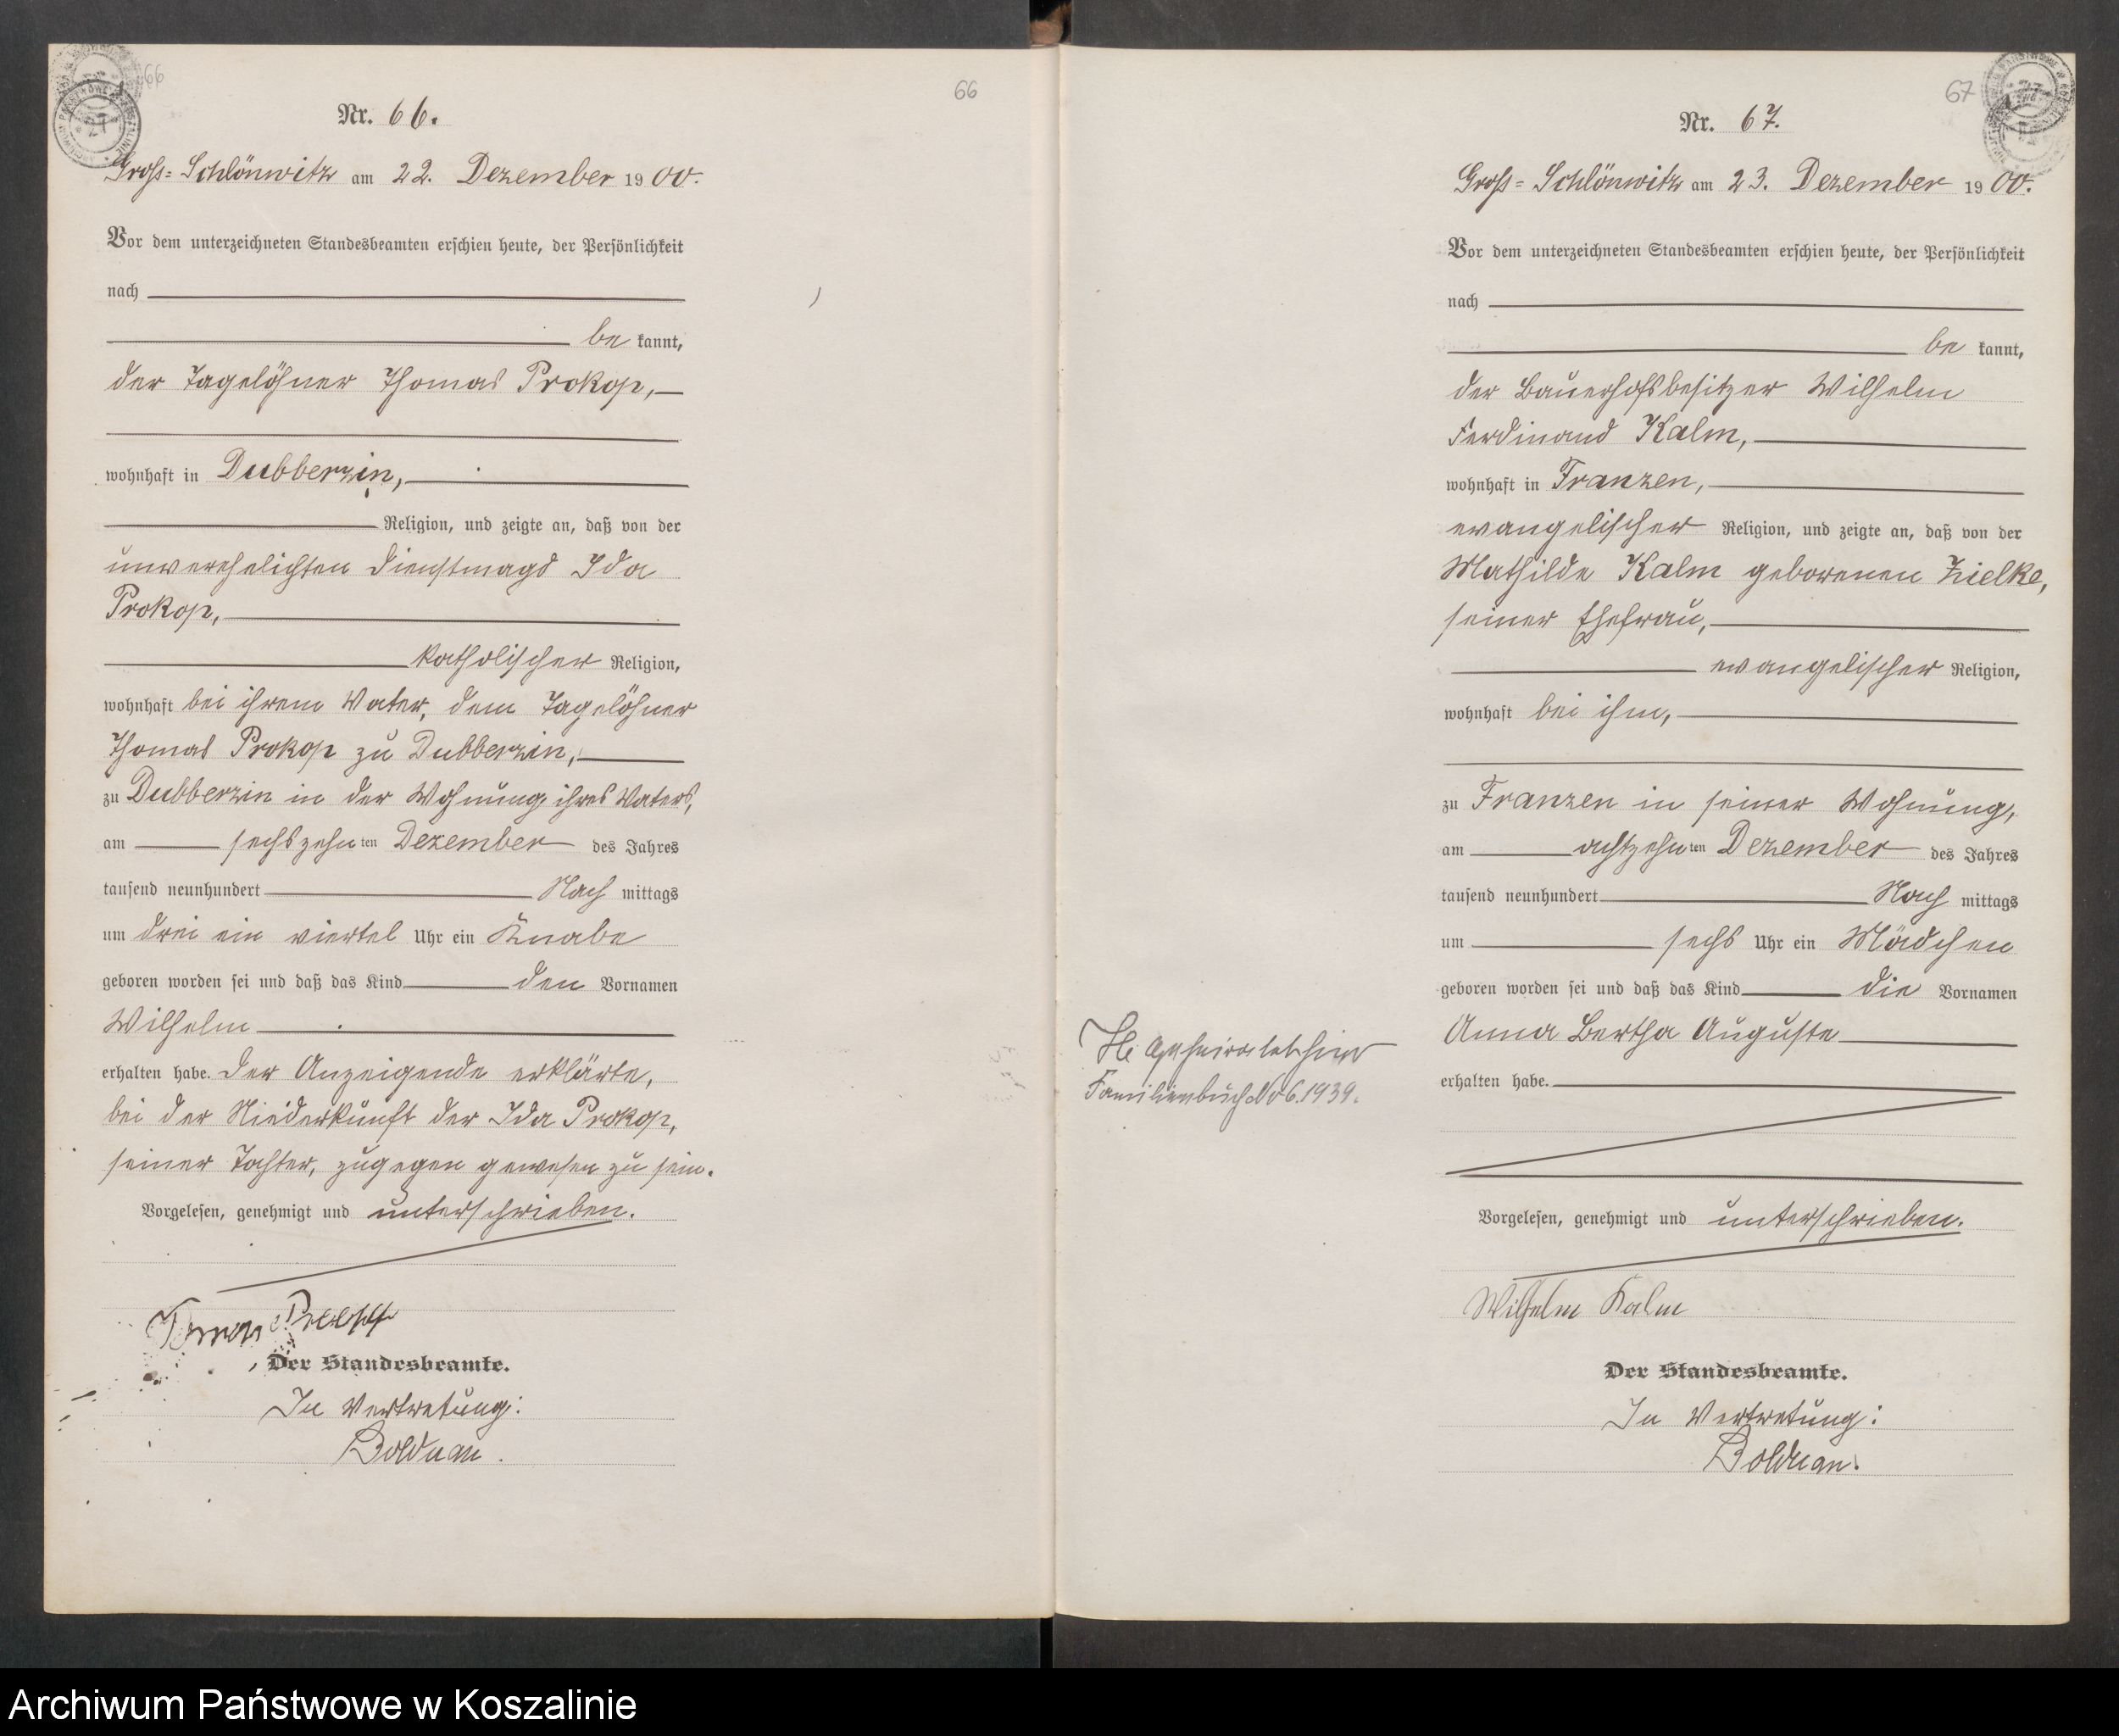 66
Nr. 66.
Groß-Schlönwitz am 22. Dezember 1900.
Vor dem unterzeichneten Standesbeamten erschien heute, der Persönlichkeit
nach
be kannt,
der Tagelöhner Thomas Prokop,
wohnhaft in Dubberzin,
Religion, und zeigte an, daß von der
unverehelichten Dienstmagd Ida
Prokop,
katholischer Religion,
wohnhaft bei ihrem Vater, dem Tagelöhner
Thomas Prokop zu Dubberzin,
zu Dubberzin in der Wohnung ihres Vaters,
am sechszehn ten Dezember des Jahres
tausend neunhundert Nach mittags
um drei ein viertel Uhr ein Knabe
geboren worden sei und daß das Kind den Vornamen
Wilhelm
erhalten habe. Der Anzeigende erklärte,
bei der Niederkunft der Ida Prokop,
seiner Tochter, zugegen gewesen zu sein.
Vorgelesen, genehmigt und unterschrieben.
Der Standesbeamte.
In Vertretung:
Bolduan.
66
67
Nr. 67.
Groß-Schlönwitz am 23. Dezember 1900.
Vor dem unterzeichneten Standesbeamten erschien heute, der Persönlichkeit
nach
be kannt,
der Bauerhofsbesitzer Wilhelm
Ferdinand Kalm,
wohnhaft in Franzen,
evangelischer Religion, und zeigte an, daß von der
Mathilde Kalm geborenen Zielke,
seiner Ehefrau,
evangelischer Religion,
wohnhaft bei ihm,
zu Franzen in seiner Wohnung,
am achtzehn ten Dezember des Jahres
tausend neunhundert Nach mittags
um sechs Uhr ein Mädchen
geboren worden sei und daß das Kind die Vornamen
Anna Bertha Auguste
erhalten habe.
Vorgelesen, genehmigt und unterschrieben.
Wilhelm Kalm
Der Standesbeamte.
In Vertretung:
Bolduan.
Familienbuch No 6.1939.
Archiwum Państwowe w Koszalinie